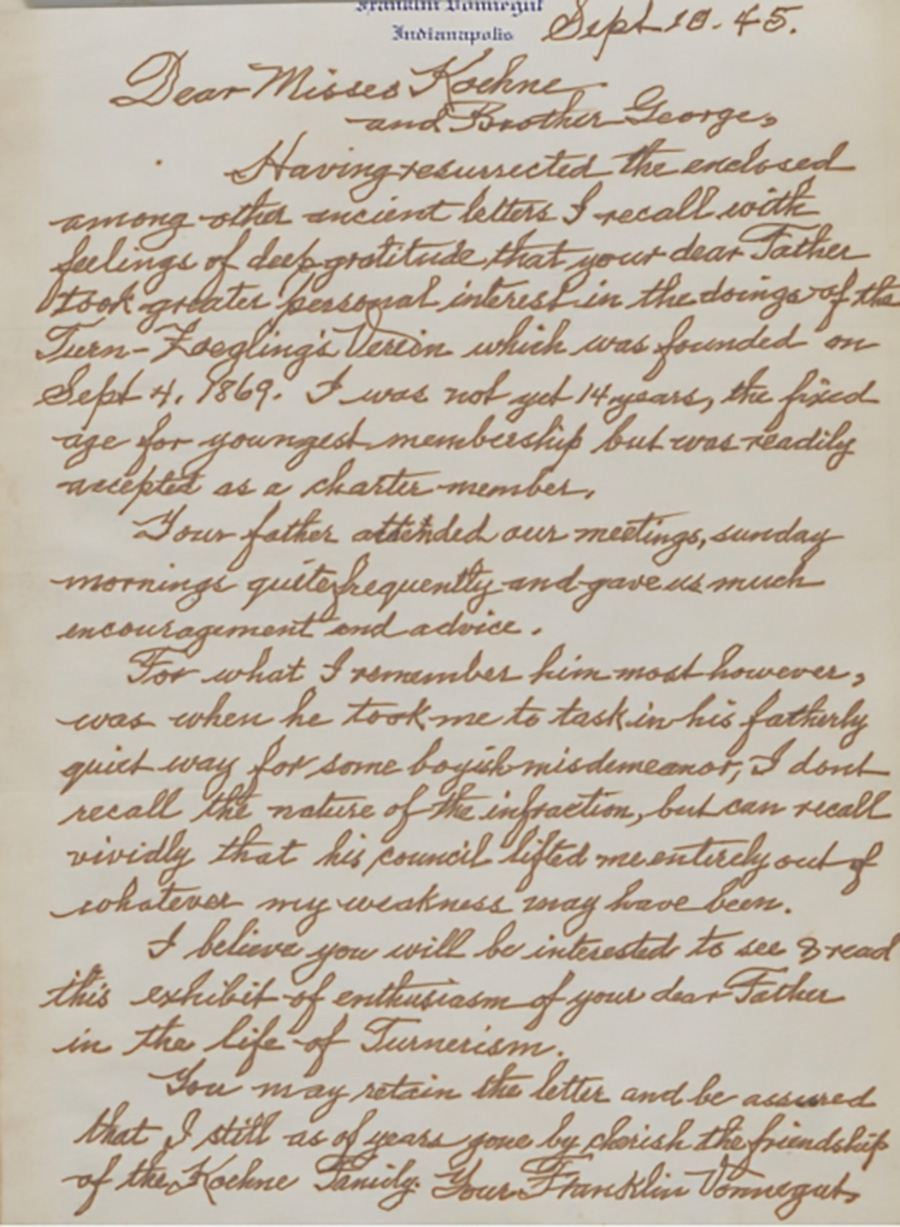 Franklin Vonnegut
Indianapolis
Sept 10. 45.
Dear Misses Koehne
and Brother George,
Having resurrected the enclosed
among other ancient letters I recall with
feelings of deep gratitude that your dear Father
took greater personal interest in the doings of the
Turn-Zoegling's Verein which was founded on
Sept 4, 1869. I was not yet 14 years, the fixed
age for youngest membership but was readily
accepted as a charter member.
Your father attended our meetings, sunday
mornings quite frequently and gave us much
encouragement and advice.
For what I remember him most however,
was when he took me to task in his fatherly
quiet way for some boyish misdemeanor, I dont
recall the nature of the infraction, but can recall
vividly that his council lifted me entirely out of
whatever my weakness may have been.
I believe you will be interested to see & read
this exhibit of enthusiasm of your dear Father
in the life of Turnerism.
You may retain the letter and be assured
that I still as of years gone by cherish the friendship
of the Koehne Family. Your Franklin Vonnegut,